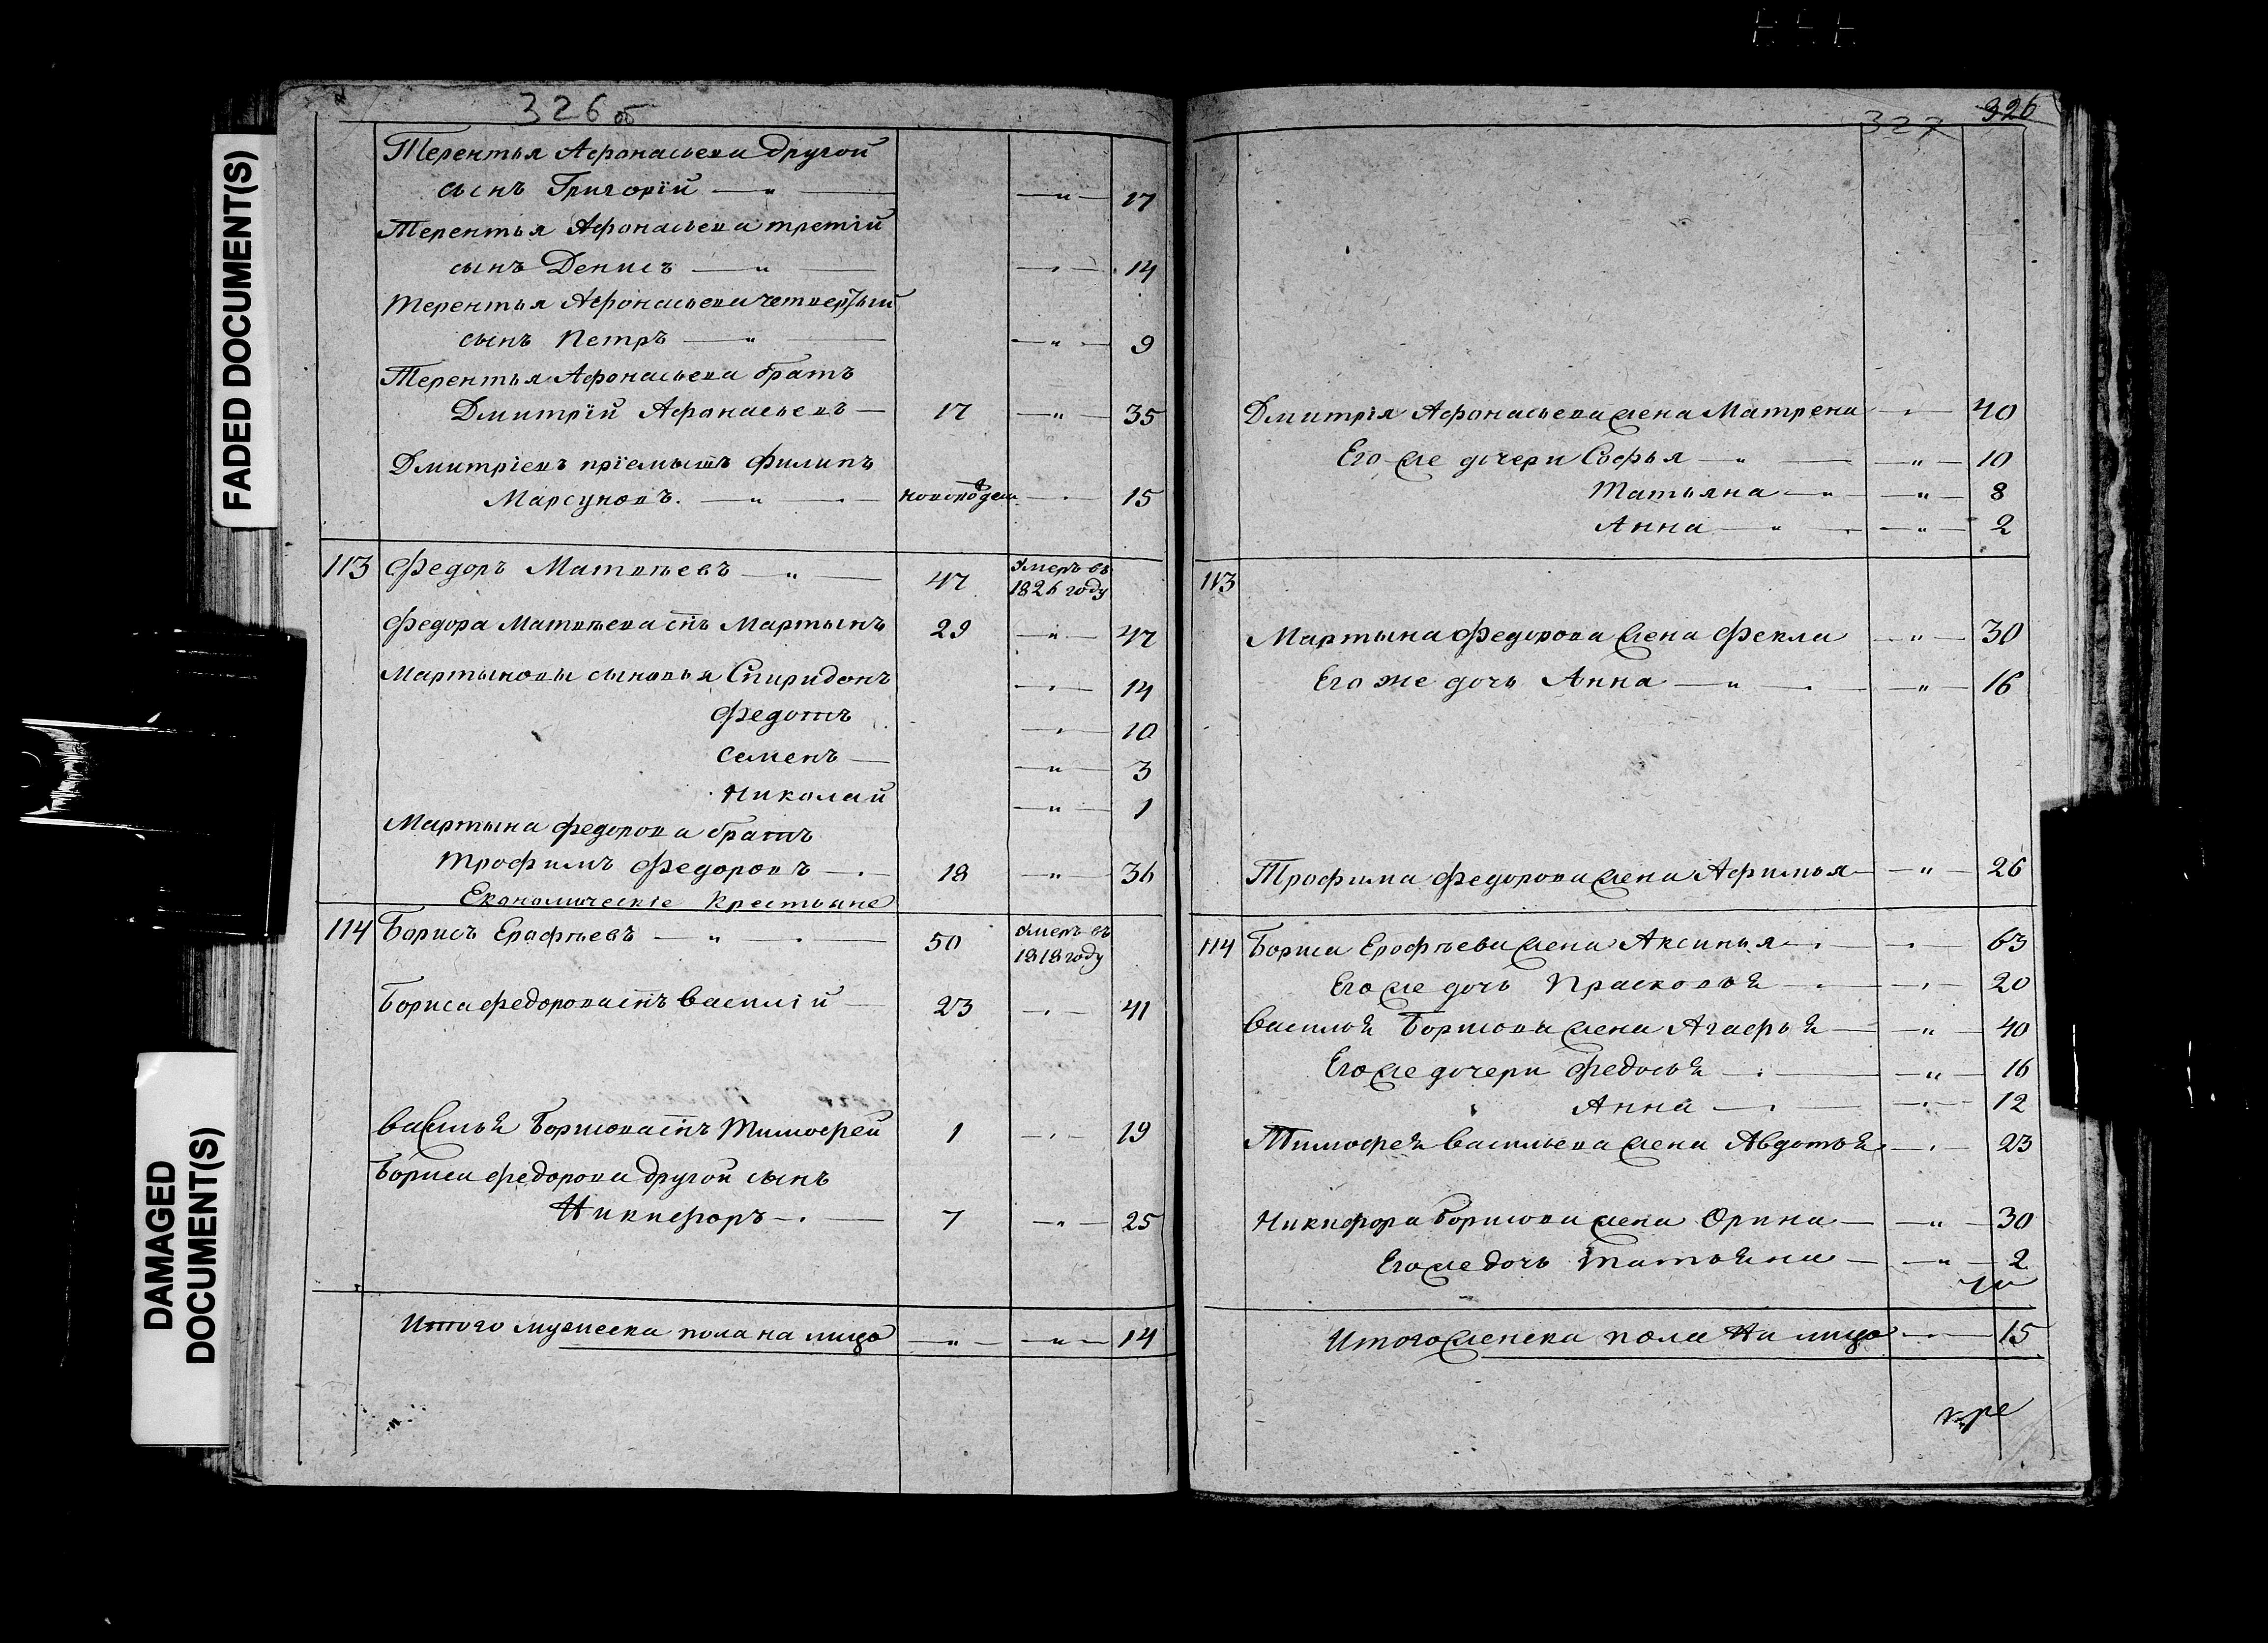 326 об
Терентья Афонасьева другой
сынъ Григорій — „ — — „ — 17
Терентья Афонасьева третій
сынъ Денисъ — „ — — „ — 14
Терентья Афонасьева четвертый
сынъ Петръ — „ — — „ — 9
Терентья Афонасьева братъ
Дмитрій Афонасьевъ — 17 — „ — 35
Дмитріевъ пріемышъ Филипъ
Марсуновъ. — „ — — „ — 15
113 Федоръ Матвѣевъ — „ — 47 Умеръ въ
1826 году
Федора Матвѣева снъ Мартынъ 29 — „ — 47
Мартыновы сыновья Спиридонъ — „ — 14
Федотъ — „ — 10
Семенъ — — „ — 3
Николай — „ — 1
Мартына Федорова братъ
Трофимъ Федоровъ — 18 — „ — 36
Економическіе Крестьяне
114 Борисъ Ерофѣевъ — „ — 50 Умеръ въ
1818 году
Бориса Федорова снъ Василій — 23 — „ — 41
Василья Борисова снъ Тимофей 1 — „ — 19
Бориса Федорова другой сынъ
Никифоръ — 7 — „ — 25
Итого мужеска пола на лицо — „ — — „ — 14
327 326
Дмитрія Афонасьева жена Матрена — „ — 40
Его же дочери Софья — „ — — „ — 10
Татьяна — „ — „ — 8
Анна — „ — — „ — 2
113
Мартына Федорова жена Фекла — „ — 30
Его же дочь Анна — „ — — „ — 16
Трофима Федорова жена Афимья — „ — 26
114 Бориса Ерофѣева жена Аксинья — „ — 63
Его же дочь Прасковья — „ — 20
Василья Борисова жена Агафья — „ — 40
Его же дочери Федосья — „ — 16
Анна — „ — 12
Тимофея Васильева жена Авдотья — „ — 23
Никифора Борисова жена Орина — „ — 30
Его же дочь Татьяна — „ — 2
Итого женска пола на лицо — „ — 15
FADED DOCUMENT(S)
DAMAGED
DOCUMENT(S)